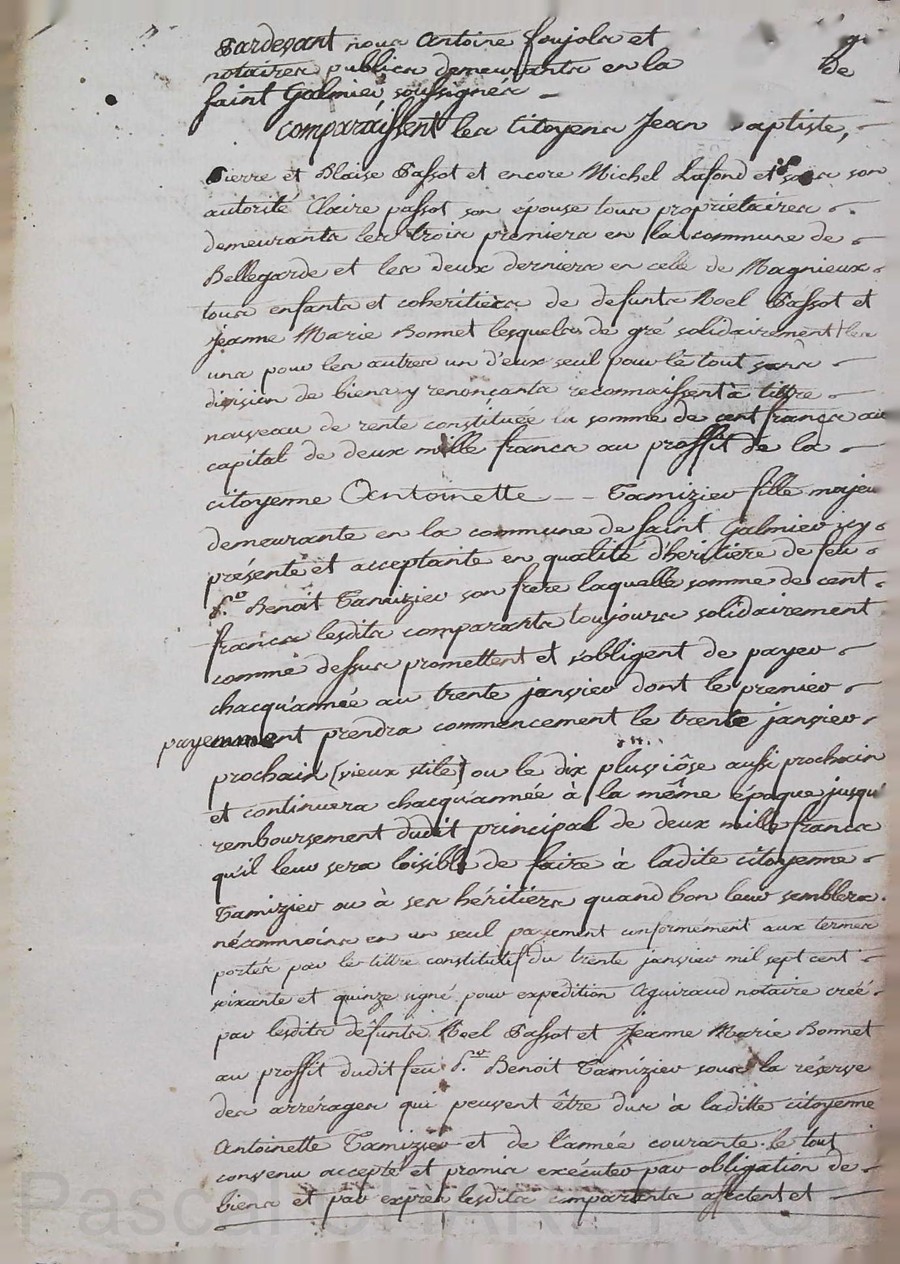 Pardevant nous Antoine Poujola et
notaires publics demeurants en la de
saint Galmier soussignés
comparaissent les citoyens Jean Baptiste,
Pierre et Blaise Passot et encore Michel Lafond et sous son
autorité Claire passot son épouse tous propriétaires
demeurants les trois premiers en la commune de
Bellegarde et les deux derniers en celle de Magnieux
tous enfants et cohéritiers de defunts Noel Passot et
jeanne Marie Bonnet lesquels de gré solidairement les
uns pour les autres un d'eux seul pour le tout sans
division de biens y renonçants reconnaissent à tittre
nouveau de rente constituée la somme de cent francs au
capital de deux mille francs au proffit de la
citoyenne Antoinette -- Tamizier fille majeu
demeurante en la commune de saint Galmier icy
présente et acceptante en qualité d'héritière de feu
s.r Benoit Tamizier son frère laquelle somme de cent
francs lesdits comparants toujours solidairement
comme dessus promettent et s'obligent de payer
chacqu'année au trente janvier dont le premier
payemment prendra commencement le trente janvier
prochain [vieux stile] ou le dix pluviôse aussi prochain
et continuera chacqu'année à la même époque jusqu'
remboursement dudit principal de deux mille francs
qu'il leur sera loisible de faire à ladite citoyenne
Tamizier ou à ses héritiers quand bon leur semblera.
nécanmoins en un seul payement conformément aux termes
portés par le tittre constitutif du trente janvier mil sept cent
soixante et quinze signé pour expedition Aguiraud notaire créé
par lesdits défunts Noel Passot et Jeanne Marie Bonnet
au proffit dudit feu s.r Benoit Tamizier sous la réserve
des arrérages qui peuvent être dus à laditte citoyenne
Antoinette Tamizier et de l'année courante. le tout
convenu accepté et promis exécuter par obligation de
biens et par exprès lesdits comparants affectent et